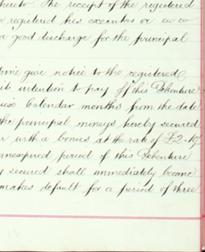 hereto. The receipt of the registered
registered his executor or
a good discharge for the principal
time give notice to the registered
its intention to pay off this Debenture
calendar months from the date
the principal moneys hereby secured
with a bonus at the rate of £2
unexpired period of this Debenture
secured shall immediately become
makes default for a period of three